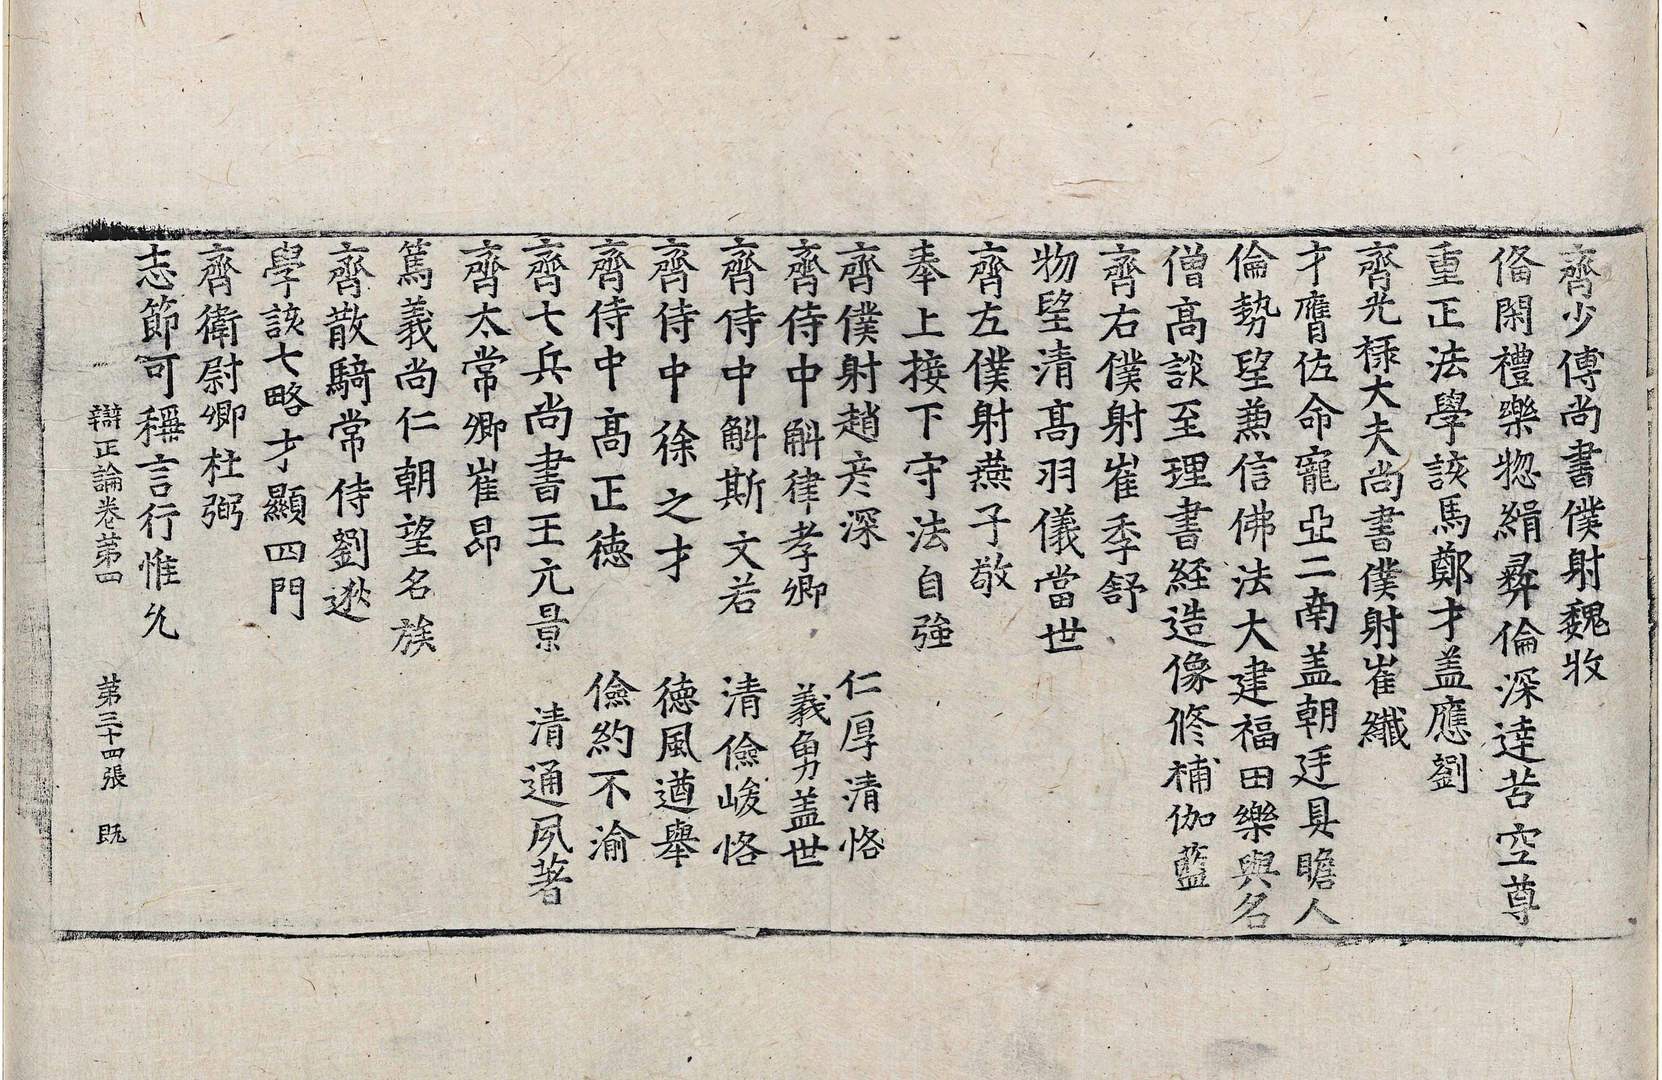 齊少傅尚書僕射魏收
俻閑禮樂惣緝彛倫深達苦空尊
重正法學該馬鄭才盖應劉
齊光祿大夫尚書僕射崔纖
才膺佐命寵亞二南盖朝廷具瞻人
倫勢望兼信佛法大建福田樂與名
僧高談至理書経造像修補伽藍
齊右僕射崔季舒
物望清高羽儀當世
齊左僕射燕子敬
奉上接下守法自強
齊僕射趙彦深　仁厚清恪
齊侍中斛律孝卿　義勇盖世
齊侍中斛斯文若　清儉峻恪
齊侍中徐之才　徳風遒舉
齊侍中高正徳　儉約不渝
齊七兵尚書王元景　清通夙著
齊太常卿崔昂
篤義尚仁朝望名族
齊散騎常侍劉逖
學該七略才顯四門
齊衛尉卿杜弼
志節可稱言行惟允
辯正論卷苐四　苐三十四張　既